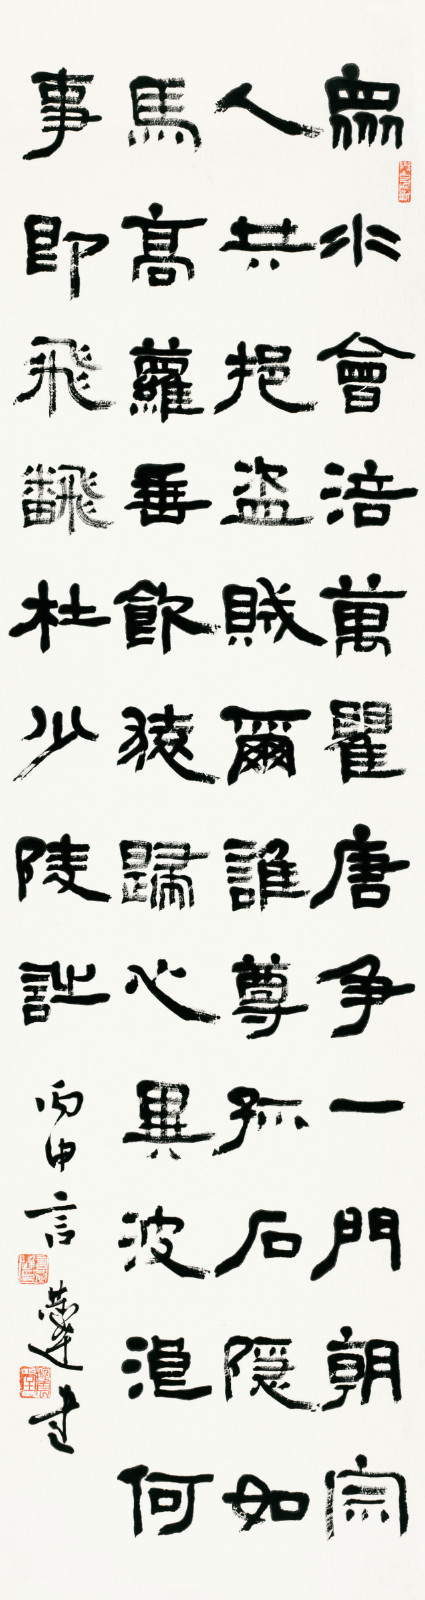 眾水會涪萬瞿唐爭一門朝宗
人共挹盜賊爾誰尊孤石隱如
馬高蘿垂飲猿歸心異波浪何
事即飛飜杜少陵詩丙申言恭達書